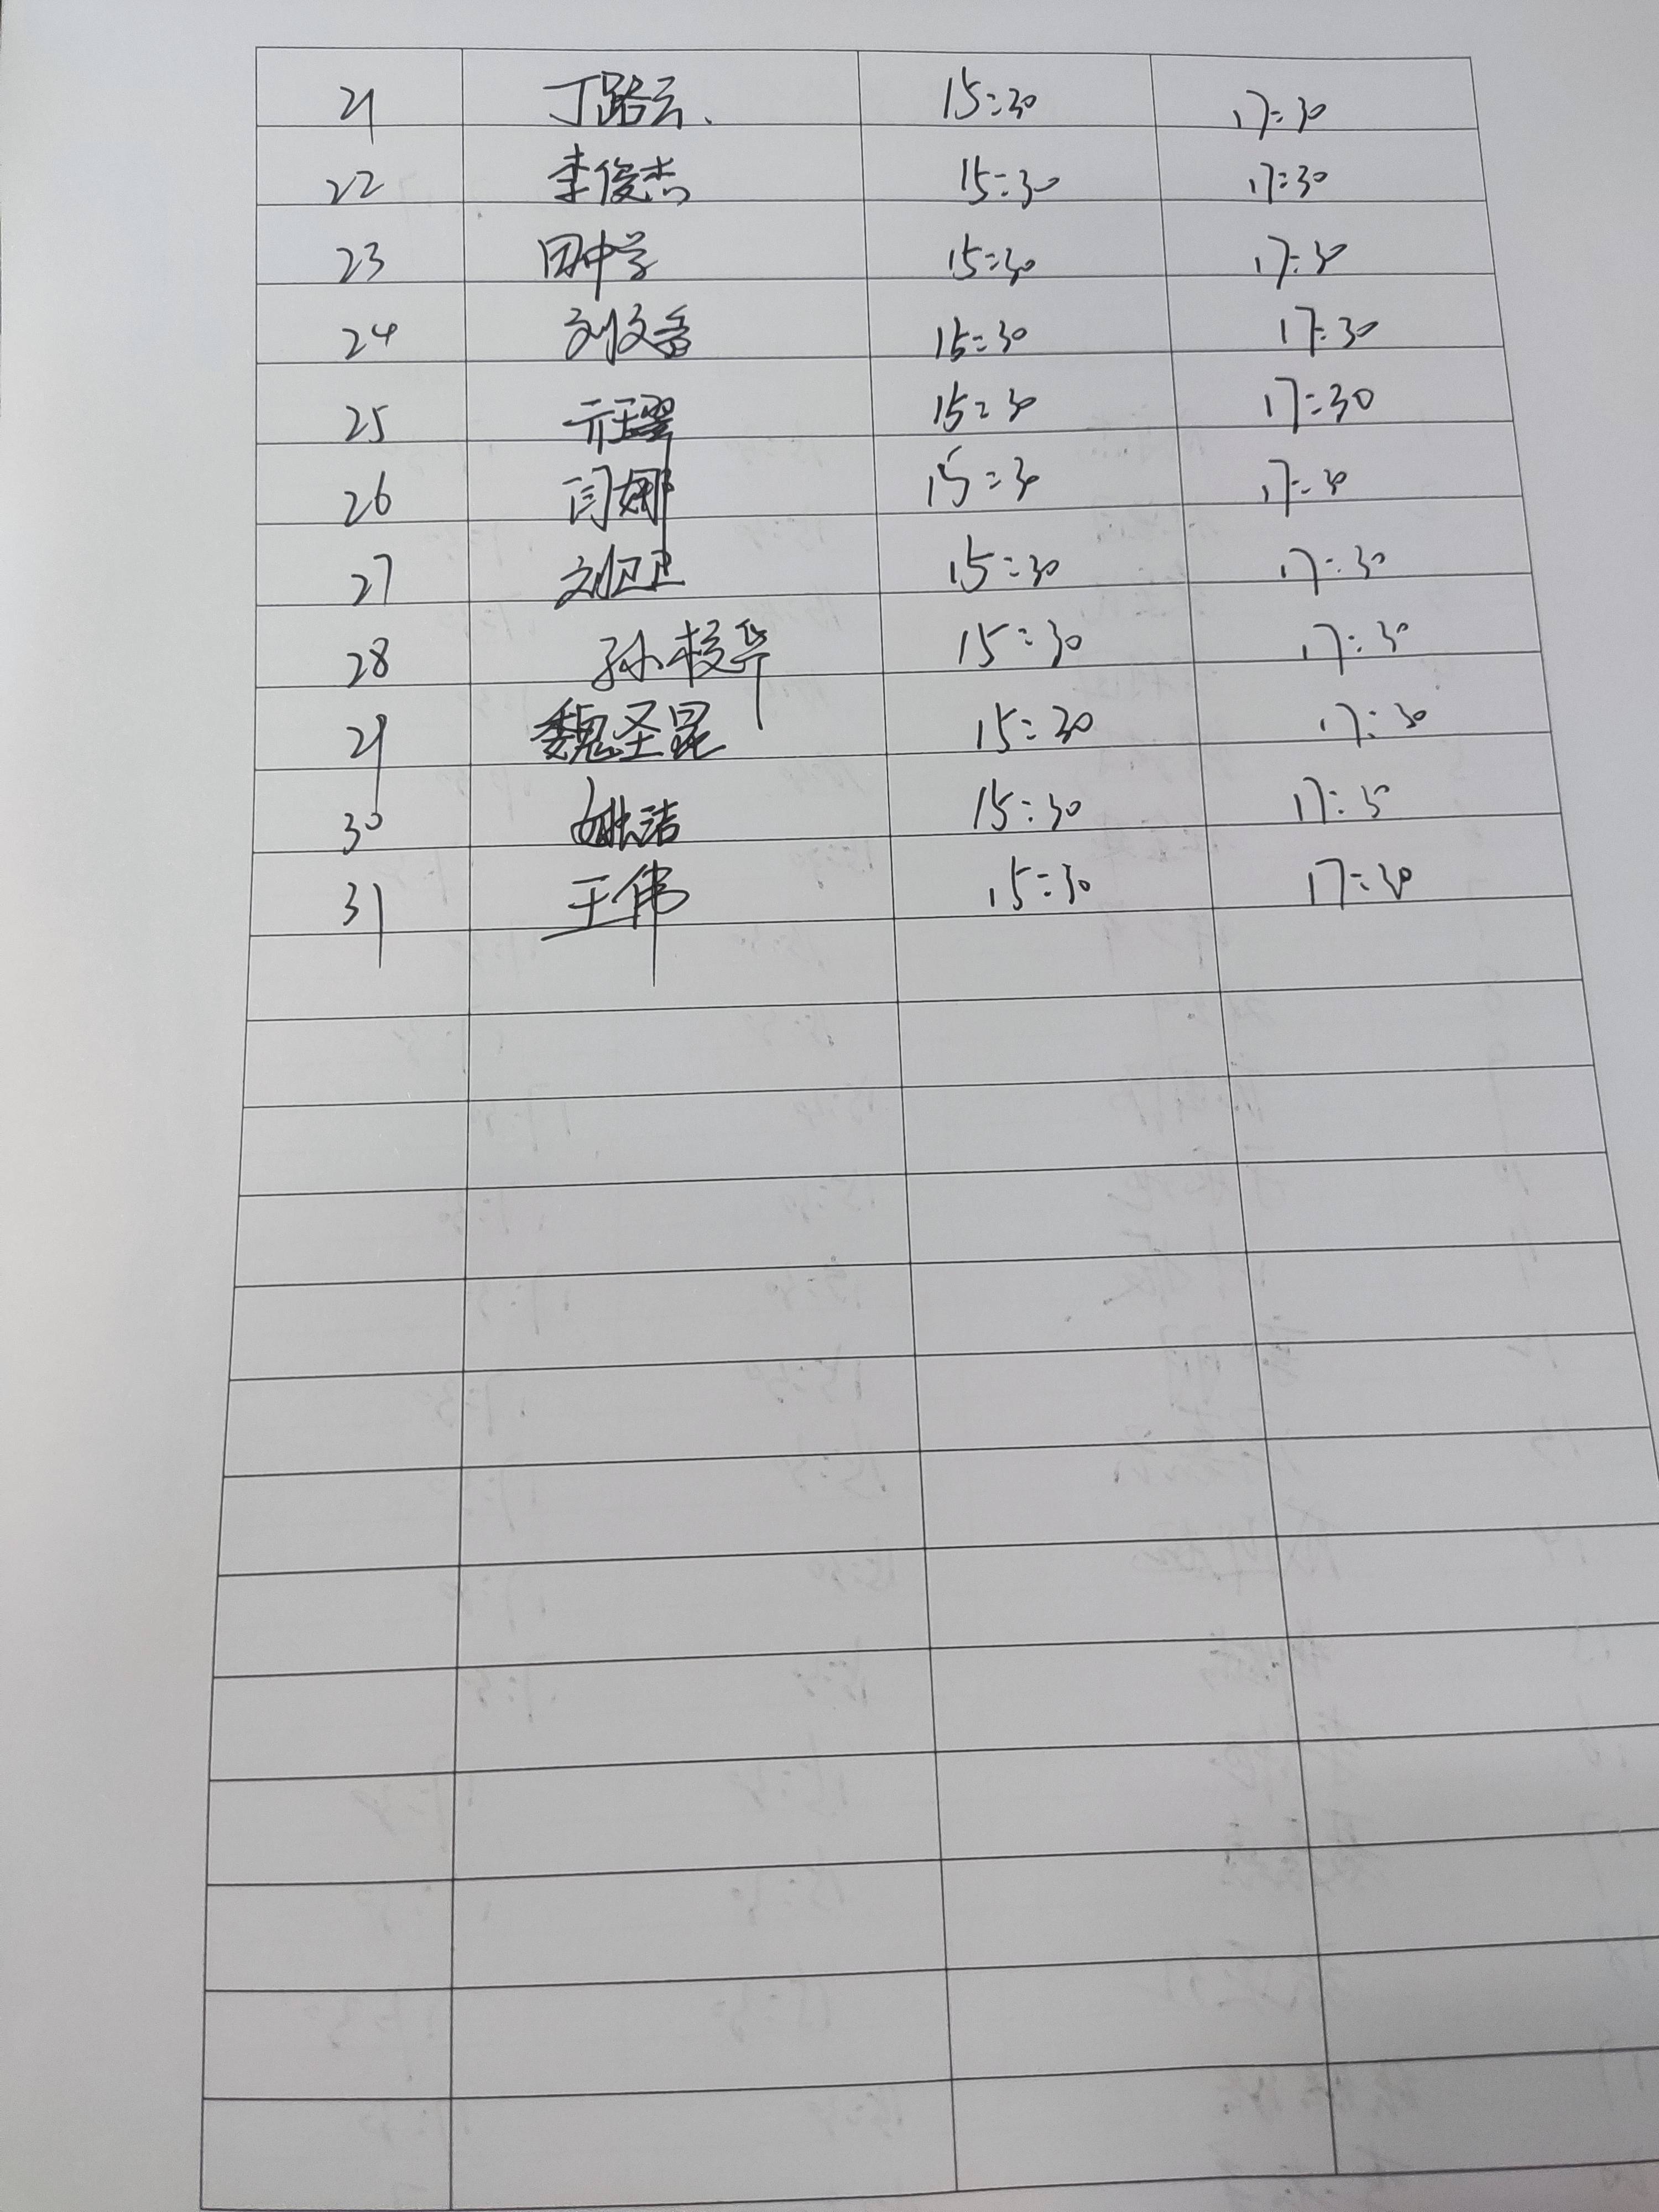 21 丁路云、 15:30 17:30
22 李俊杰 15:30 17:30
23 田中学 15:30 17:30
24 刘文香 15:30 17:30
25 15:30 17:30
26 闫娜 15:30 17:30
27 刘卫卫 15:30 17:30
28 孙枝华 15:30 17:30
29 魏圣昆 15:30 17:30
30 姚洁 15:30 17:30
31 王伟 15:30 17:30